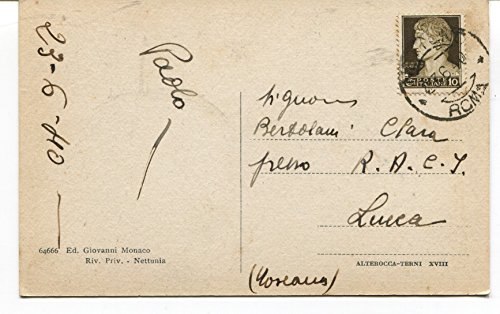 23-6-40
Paolo
64666 Ed. Giovanni Monaco
Riv. Priv. - Nettunia
10
ROMA
Signora
Bertolani Clara
presso R. A. C. I.
Lucca
(Toscana)
ALTEROCCA-TERNI XVIII